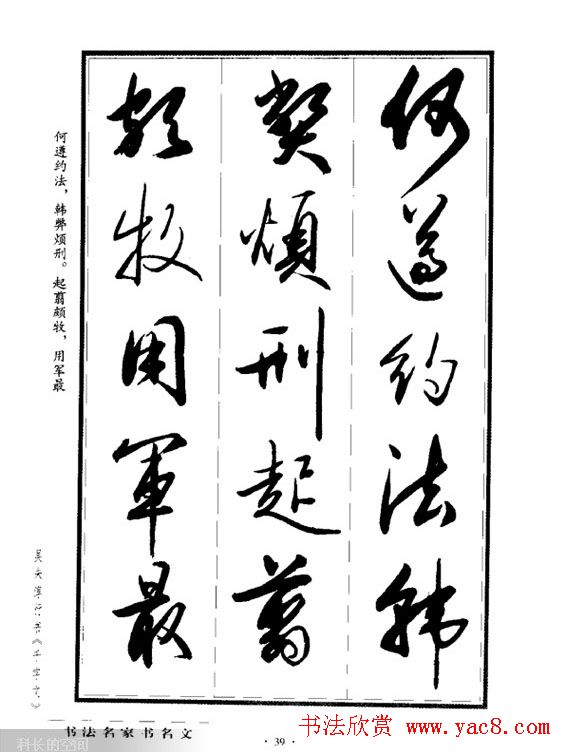 何遵約法韓
弊煩刑起翦
頗牧用軍最
何遵约法，韩弊烦刑。起翦颇牧，用军最
吴未淳行书《千字文》
书法名家书名文
科长的空间
· 39 ·
书法欣赏 www.yac8.com